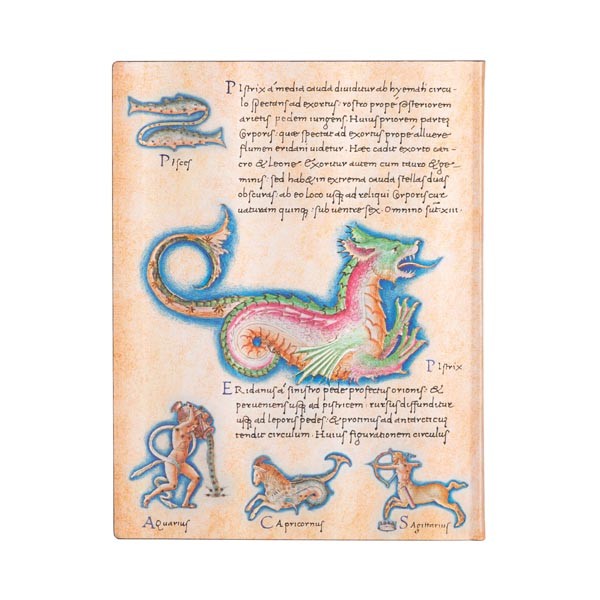 PIstrix á media cauda diuiditur ab hyemali circu
lo spectans ad exortus: rostro prope posteriorem
arietis pedem iungens. Huius priorem partem
Corporis: quæ spectat ad exortus propé alluere
flumen eridani uidetur. Hæc cadit exorto can-
cro & Leone Exoritur autem cum tauro & ge
minis: sed hab& in extrema cauda stellas duas
obscuras: ab eo loco usq; ad reliqui Corporis cur
uaturam quinq; : sub uentre sex. Omnino sūt xiii.
PIsces
PIstrix
ERidanus á sinistro pede profectus orionis: &
perueniens usq; ad pistricem: rursus diffunditur
usq; ad leporis pedes: & protinus ad antarcticū
tendit circulum. Huius figurationem circulus
AQuarius
CApricornus
SAgittarius